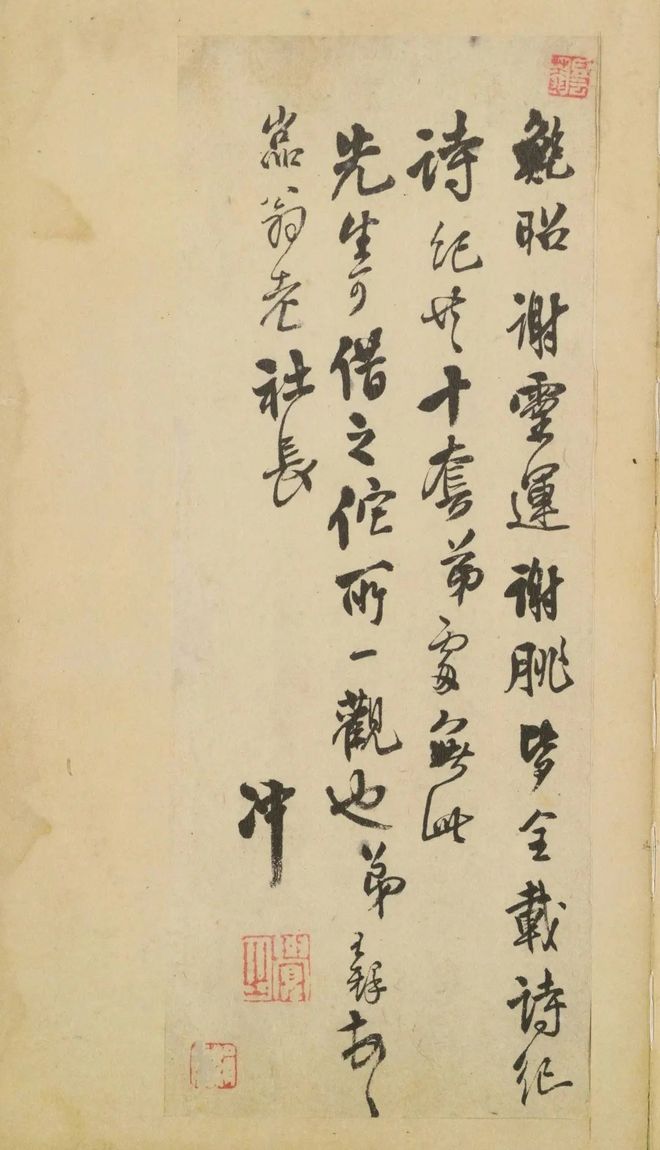 鮑照謝靈運謝朓皆全載詩紀
詩紀共十套弟處無此
先生可借之佗所一觀也弟王鐸
嵒翁老社長
冲